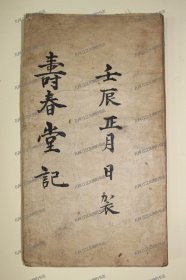 壬辰正月日製
壽春堂記